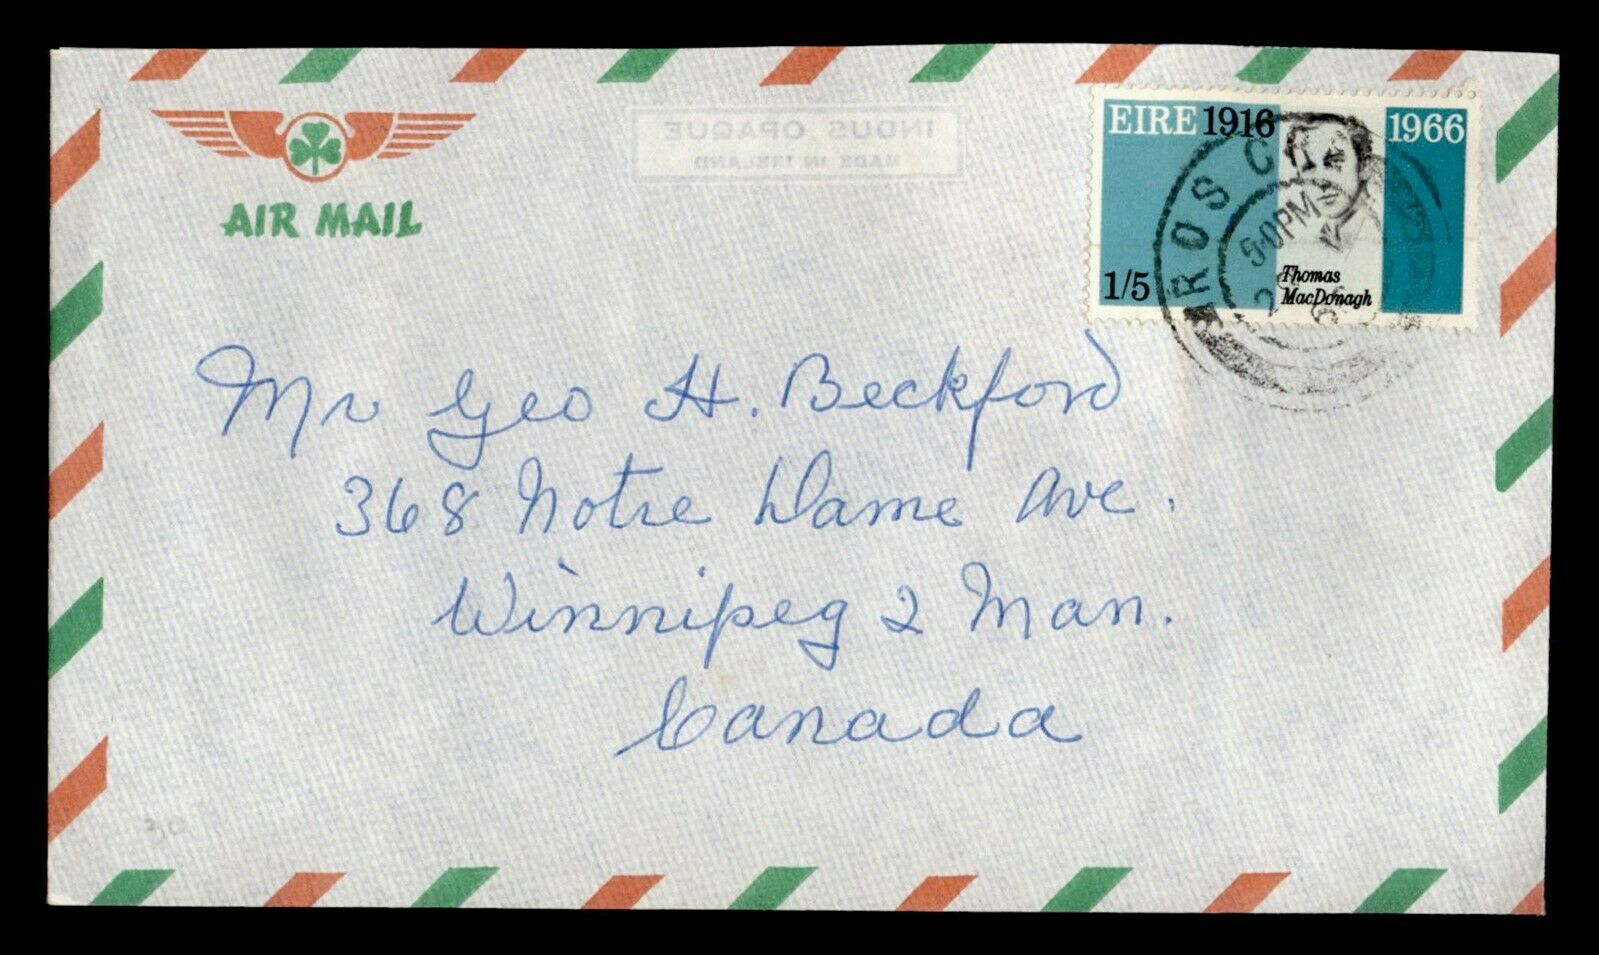 AIR MAIL
INDUS OPAQUE
MADE IN IRELAND
EIRE 1916 1966
1/5
Thomas
MacDonagh
ROS C
5-0PM
Mr Geo H. Beckford
368 Notre Dame Ave.
Winnipeg 2 Man.
Canada